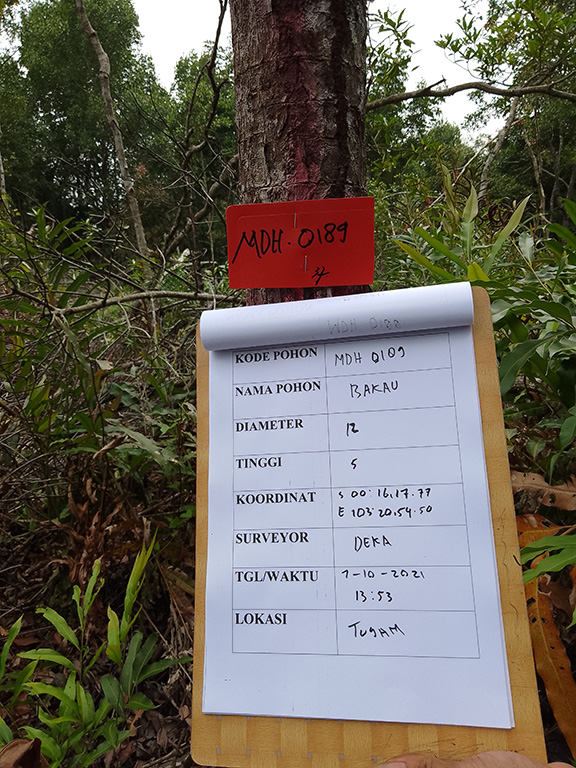 MDH. 0189
34
MDH 0188
KODE POHON MDH 0189
NAMA POHON BAKAU
DIAMETER 12
TINGGI 5
KOORDINAT S 00: 16. 17. 77
E 103: 20. 54. 50
SURVEYOR DEKA
TGL/WAKTU 7-10-2021
13:53
LOKASI TUGAM